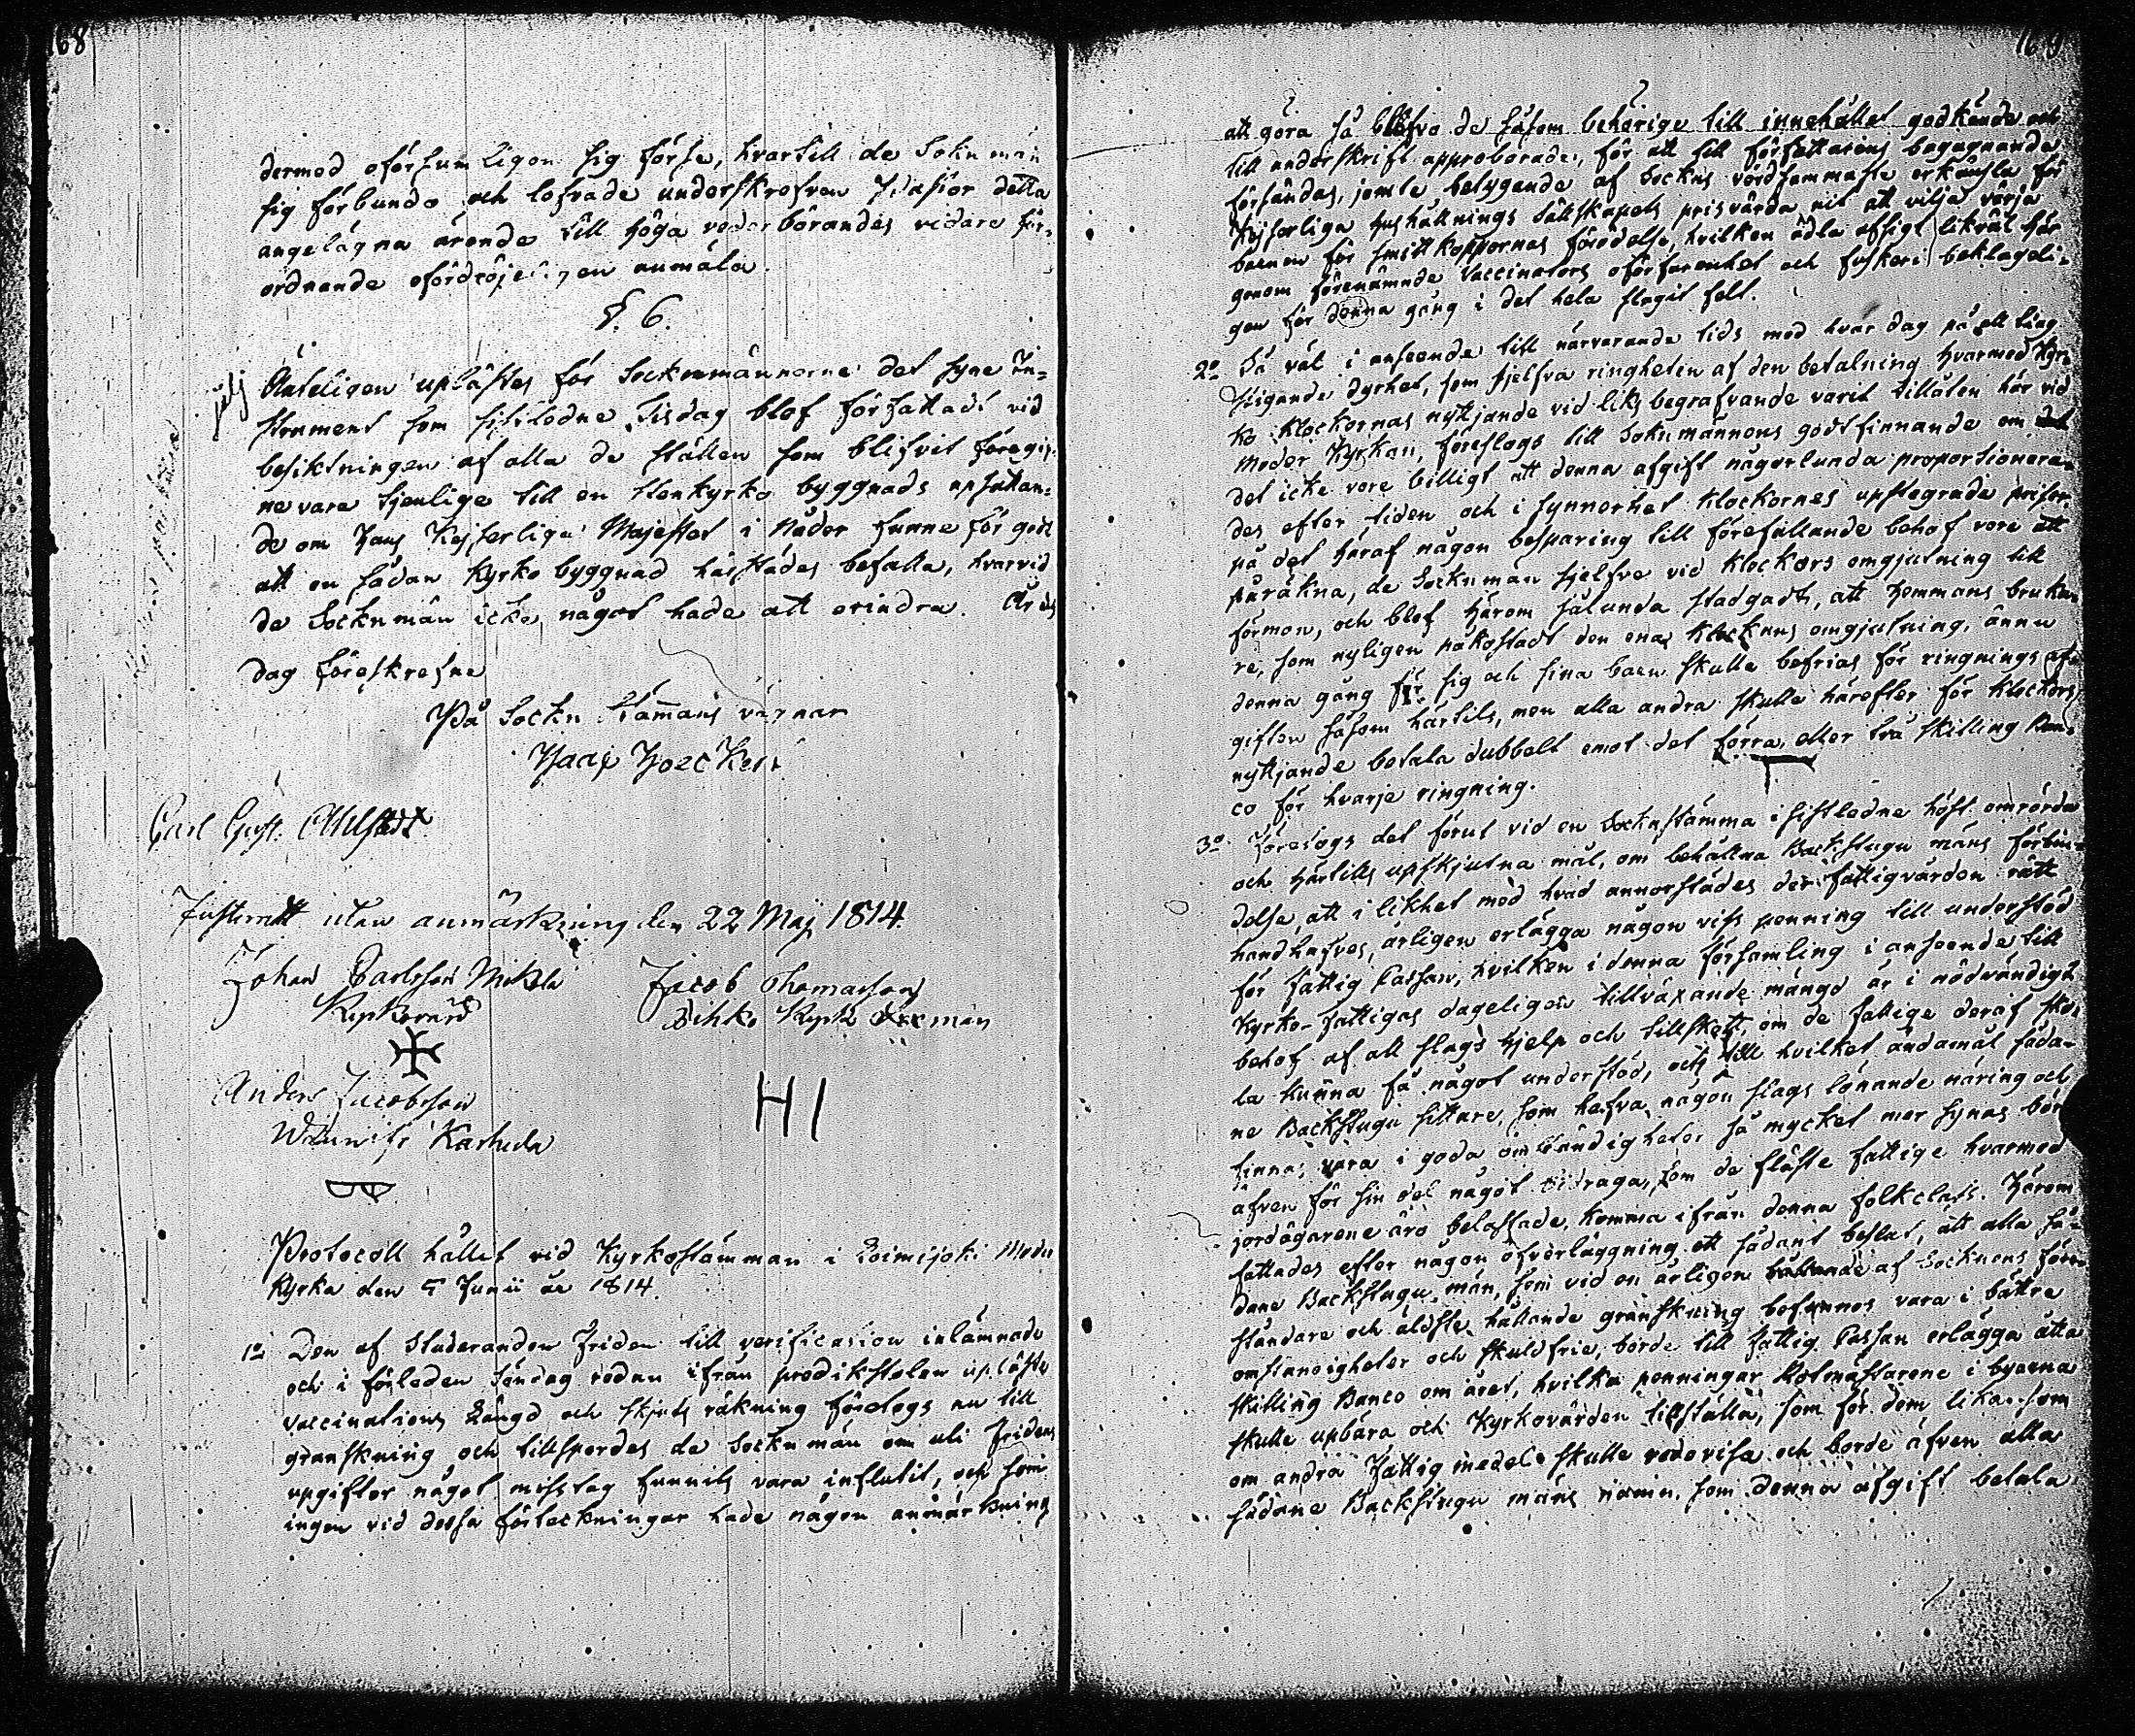 168
dermed oförsumligen sig förse, hvartill de Soknmän
sig förbundo och lofvade underskrefven
angelägna ärende till höga vederbörandes vidare för-
ordnande ofördröjeligen anmäla.
§. 6.
Änteligen uplästes för Socknemännerne det syne In-
strument som sistledne Tisdag blef författadt vid
besiktningen af alla de ställen som blifvit föregif-
ne vare tjenlige till en Stenkyrko byggnads upsättan-
de om Hans Kejserliga Majestet i Nåder funne för godt
att en sådan Kyrko byggnad härstädes befalla, hvarvid
de Socknmän icke något hade att erindra. År och
dag föreskrefne
På Sockn Stämans vägnar
Carl Gust. Ahlstedt
Justeradt utan anmärkning den 22 Maj 1814.
Johan Carlsson Mikola
Kyrkovärd
Jacob Thomasson
Pihko Kyrk
Anders Jacobsson
HI
Protocoll hållet vid Kyrkostämman i Loimijoki Moder
Kyrka den 5 Junii år 1814.
1o Den af Studeranden Friden till verification inlämnade
och i förleden Söndag redan ifrån predikstolen upläste
Vaccinations Längd och skjuts räkning företogs nu till
granskning och tillspordes de Socknmän om uti Fridens
upgifter något misstag funnits vara influtit, och som
ingen vid dessa förteckningar hade någon anmärkning
169
att göra så blefvo de såsom behörige till innehållet godkände och
till underskrift approberade, för att till författarens begagnande
försändas, jemte betygande af Socknens vördsammaste erkänsla för
Kejserliga Hushållnings Sällskapets prisvärda nit att vilja värja
barnen för smittkoppornas förödelse, hvilken ädla afsigt likväl här
genom förenämnde Vaccinators oförfarenhet och fuskeri beklageli-
gen för denna gång i det hela slagit felt.
2o Så väl i anseende till närvarande tids med hvar dag på allting
stigande dyrhet, som sjelfva ringheten af den betalning hvarmed Kyr-
ko klockornas nyttjande vid liks begrafvande varit tillåten här vid
Moder Kyrkan, föreslogs till Soknmännens godtfinnande om
det icke vore billigt att denna afgift någorlunda proportionera-
des efter tiden och i synnerhet klockornes upstegrade priser,
på det häraf någon besparing till förefallande behof vore att
påräkna, de Socknmän sjelfve vid klockors omgjutning till
förmon, och blef härom sålunda stadgadt, att Hemmans bruka-
re, som nyligen påkostadt den ena klockans omgjutning, ännu
denna gång för sig och sina barn skulle befrias för ringnings af-
giften såsom härtils, men alla andra skulle härefter för klockors
nyttjande betala dubbelt emot det förra, eller två skilling Ban-
co för hvarje ringning.
3o Företogs det förut vid en Socknstämma i sistledne höst omrörda
och härtills upskjutna mål, om behållna Backstugu mäns förbin-
delse, att i likhet med hvad annorstädes der fattigvården rätt
handhafves, årligen erlägga någon viss penning till understöd
för Fattig Cassan, hvilken i denna församling i anseende till
Kyrko-fattigas dageligen tillväxande mängd är i nödvändigt
behof af all slags hjelp och tillskott, om de fattige deraf sko-
la kunna få något understöd, och till hvilket ändamål såda-
ne Backstugu sittare, som hafva någon slags lönande näring och
finnas vara i goda omständigheter så mycket mer synas bör
äfven för sin del något bidraga, som de fläste fattige hvarmed
jordägarene äro belastade, komma ifrån denna folkclass. Härom
fattades efter någon öfverläggning ett sådant beslut, att alla så-
dane Backstugu män, som vid en årligen af Socknens före-
ståndare och äldste hållande granskning befunnos vara i bättre
omständigheter och skuldfrie, borde till Fattig Cassan erlägga åtta
skilling Banco om året, hvilka penningar Rotmästarene i byarna
skulle upbära och Kyrkovärden tillställa, som för dem lika som
om andra Fattig medel skulle redovisa och borde äfven alla
sådane Backstugu mäns namn, som denna afgift betala